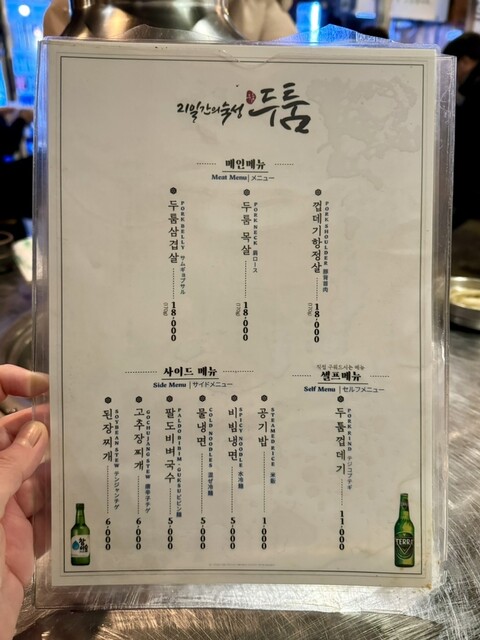 21일간의숙성 두툼
메인메뉴
Meat Menu | メニュー
두툼삼겹살 18.000
PORK BELLY サムギョプサル
두툼 목살 18.000
PORK NECK 肩ロース
껍데기항정살 18.000
PORK SHOULDER
사이드 메뉴
Side Menu | サイドメニュー
된장찌개 6.000
SOYBEAN STEW テンジャンチゲ
고추장찌개 6.000
GOCHUJANG STEW 唐辛子チゲ
팔도비벼국수 5.000
PALDO BIBIM-GUKSU ビビン麺
물냉면 5.000
COLD NOODLES 混ぜ冷麺
비빔냉면 5.000
SPICY NOODLE 水冷麺
공기밥 1.000
STEAMED RICE 米飯
직접 구워드시는 메뉴
셀프메뉴
Self Menu | セルフメニュー
두툼껍데기 11.000
PORK RIND テジコプテギ
TERRA